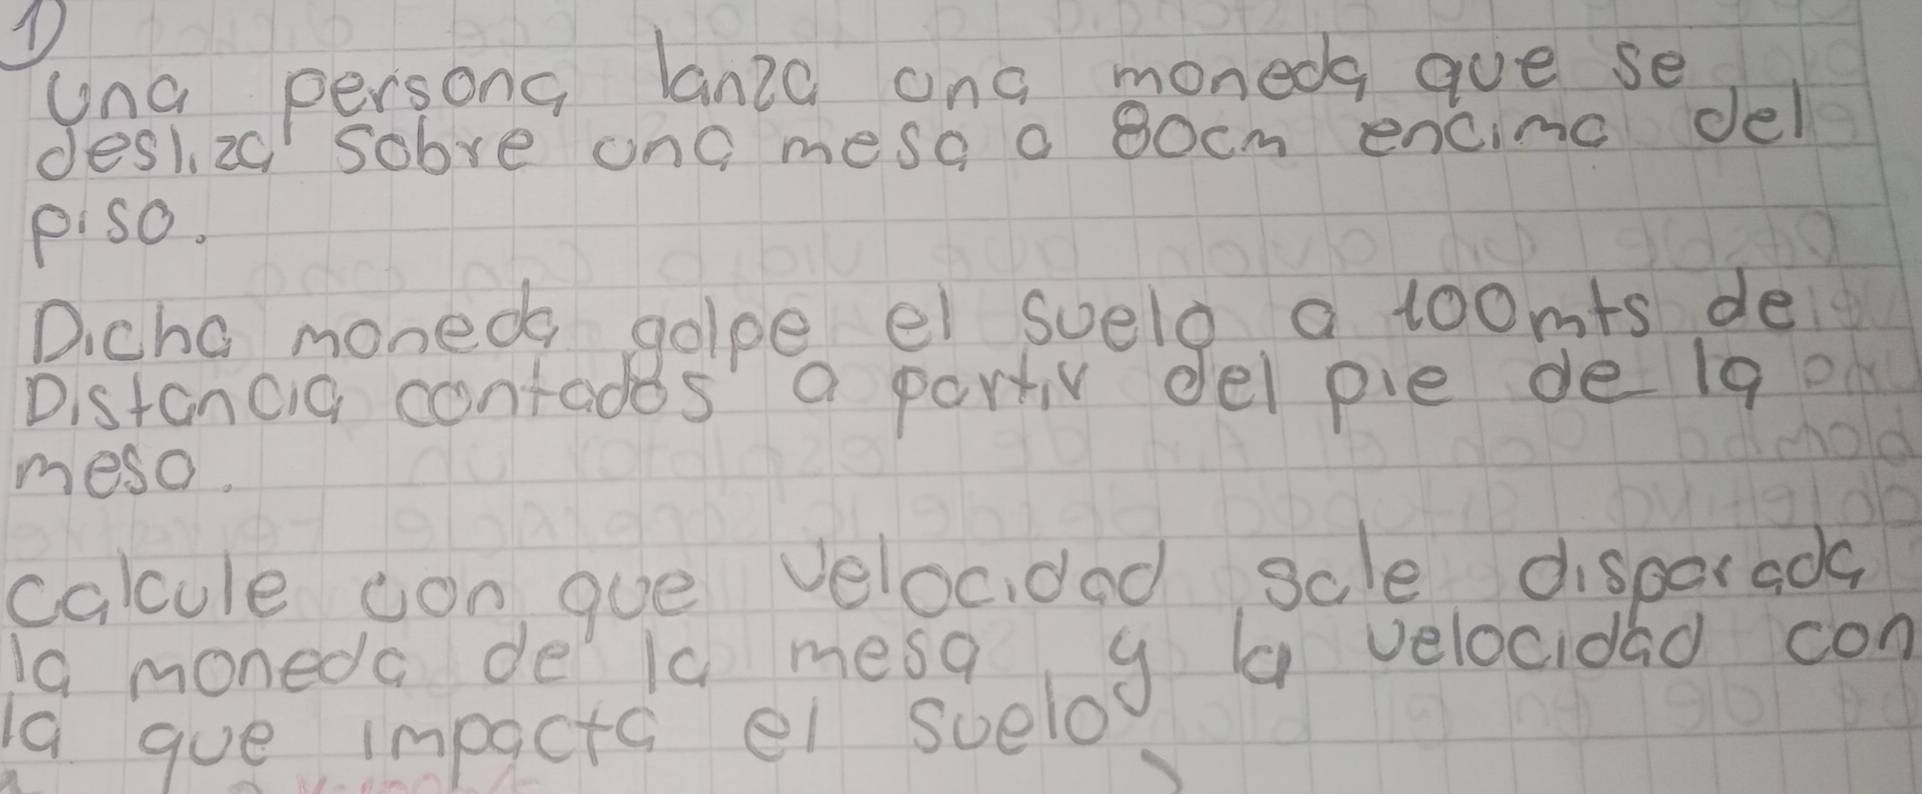 1)
una persona lanza una moneda que se
desliza sobre una mesa a 80cm encima del
piso.
Dicha moneda golpe el suelo a 100mts de
Distancia contados a partir del pie de la
mesa.
calcule con que velocidad sale disparada
la moneda de la mesa y la velocidad con
la que impacta el suelo